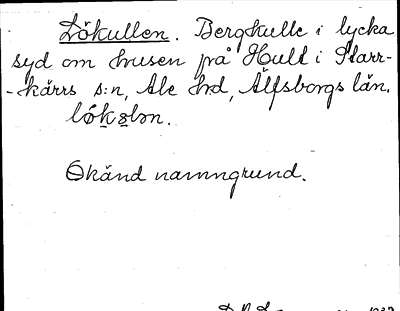 Lökullen. Bergkulle i lycka
syd om husen på Hult i Starr-
-kärrs s:n, Ale hrd, Älfsborgs län.
lö́kɷlən.
Okänd namngrund.